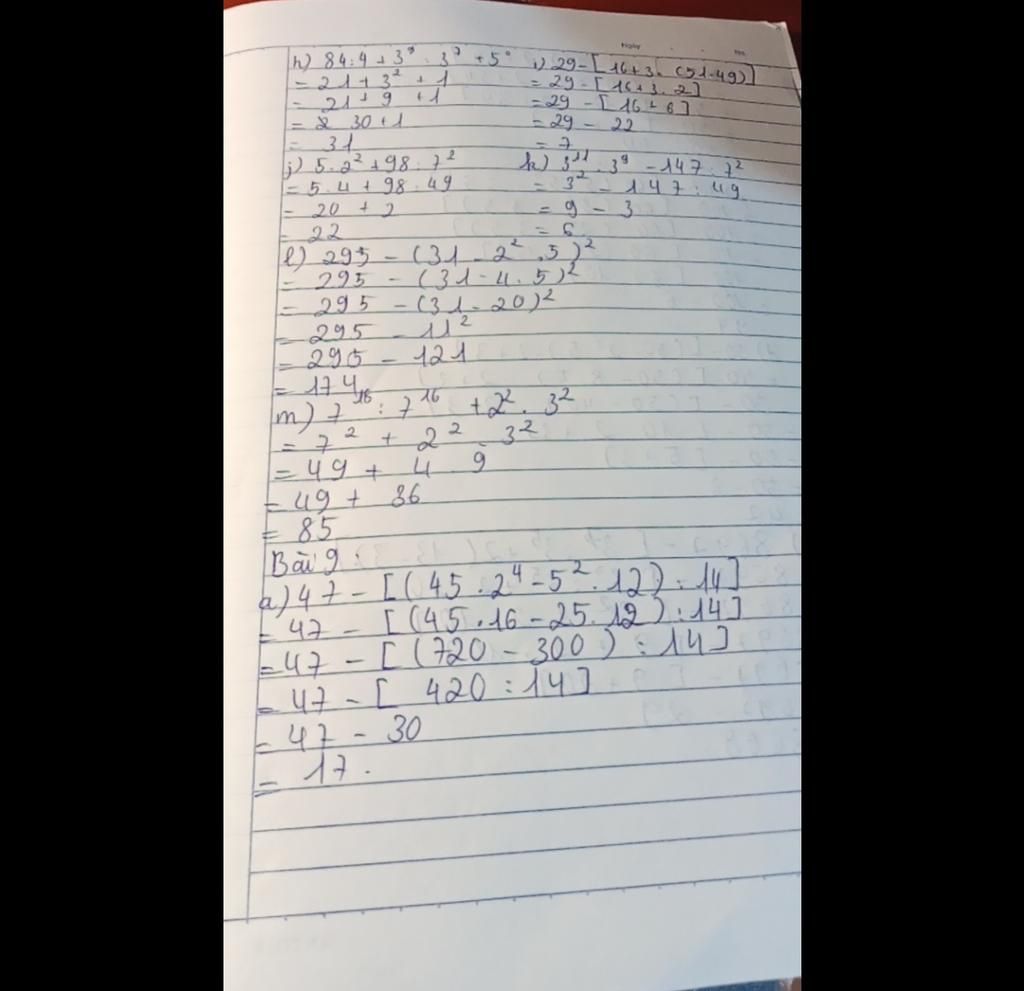 h) 84:4 + 3⁹ : 3⁷ + 5⁰
= 21 + 3² + 1
= 21 + 9 + 1
= 30 + 1
= 31
i) 29 - [16 + 3. (51-49)]
= 29 - [16 + 3. 2]
= 29 - [16 + 6]
= 29 - 22
= 7
j) 5.2² + 98 : 7²
= 5.4 + 98 : 49
= 20 + 2
= 22
k) 3¹¹ : 3⁹ - 147 : 7²
= 3² - 147 : 49
= 9 - 3
= 6
l) 295 - (31 - 2² . 5)²
= 295 - (31 - 4. 5)²
= 295 - (31 - 20)²
= 295 - 11²
= 295 - 121
= 174
m) 7¹⁸ : 7¹⁶ + 2² . 3²
= 7² + 2² . 3²
= 49 + 4 . 9
= 49 + 36
= 85
Bài 9:
a) 47 - [(45 . 2⁴ - 5² . 12) : 14]
= 47 - [(45 . 16 - 25. 12) : 14]
= 47 - [(720 - 300) : 14]
= 47 - [420 : 14]
= 47 - 30
= 17.